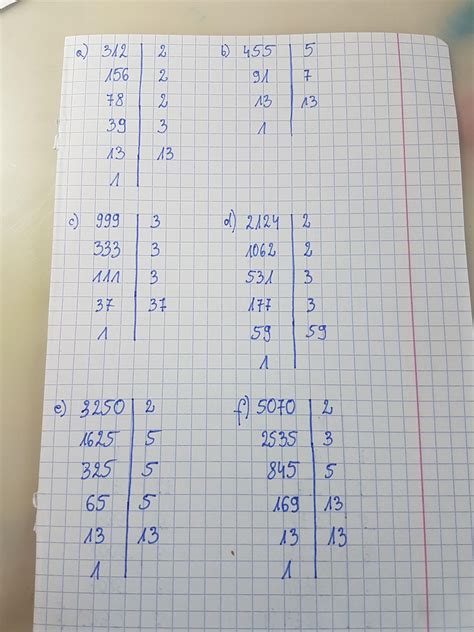 a) 312 | 2 b) 455 | 5
156 | 2 91 | 7
78 | 2 13 | 13
39 | 3 1
13 | 13
1
c) 999 | 3 d) 2124 | 2
333 | 3 1062 | 2
111 | 3 531 | 3
37 | 37 177 | 3
1 59 | 59
1
e) 3250 | 2 f) 5070 | 2
1625 | 5 2535 | 3
325 | 5 845 | 5
65 | 5 169 | 13
13 | 13 13 | 13
1 1